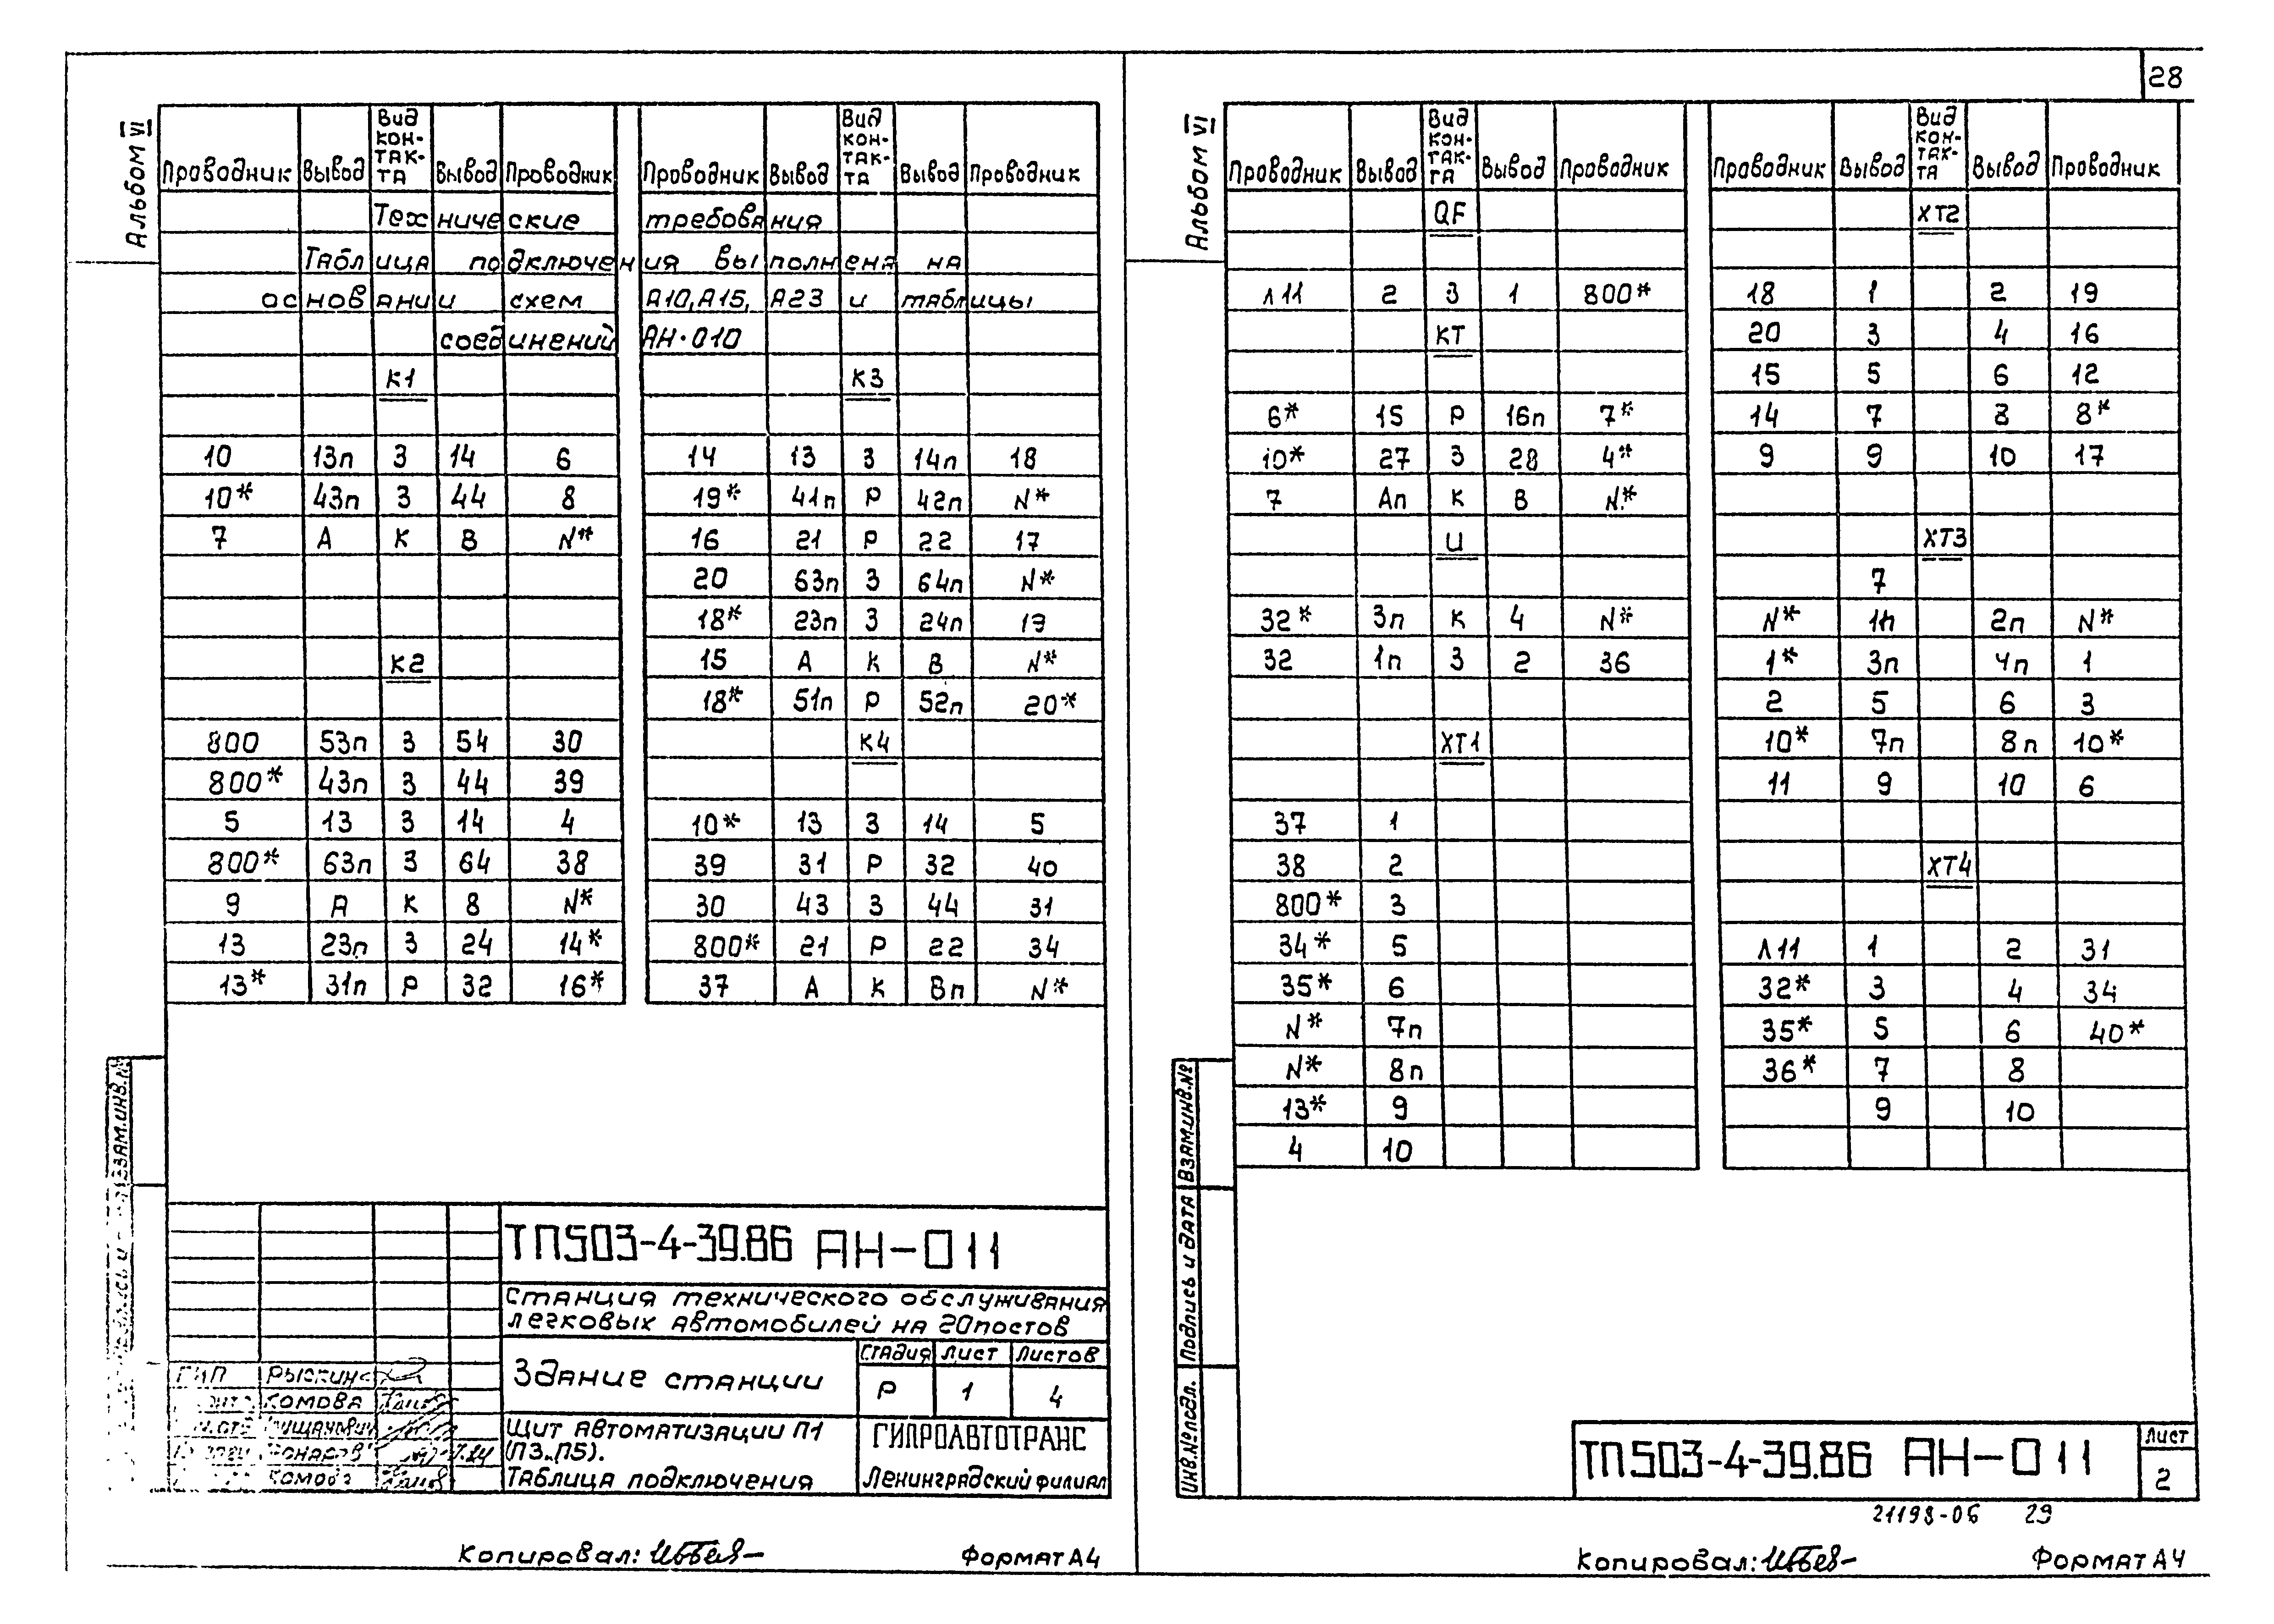 Альбом VI
Проводник Вывод Вид кон-так-та Вывод Проводник
Технические
Таблица подключен
основании схем
соединений
К1
10 13п З 14 6
10* 43п З 44 8
7 А К В N*
К2
800 53п З 54 30
800* 43п З 44 39
5 13 З 14 4
800* 63п З 64 38
9 А К 8 N*
13 23п З 24 14*
13* 31п Р 32 16*
Проводник Вывод Вид кон-так-та Вывод Проводник
требования
ия выполнена на
А10,А15, А23 и таблицы
АН·010
К3
14 13 З 14п 18
19* 41п Р 42п N*
16 21 Р 22 17
20 63п З 64п N*
18* 23п З 24п 19
15 А К В N*
18* 51п Р 52п 20*
К4
10* 13 З 14 5
39 31 Р 32 40
30 43 З 44 31
800* 21 Р 22 34
37 А К Вп N*
Взам.инв.№
ТП503-4-39.86 АН-011
Станция технического обслуживания
легковых автомобилей на 20 постов
Здание станции
Стадия Лист Листов
Р 1 4
Щит автоматизации П1
(П3,П5).
Таблица подключения
ГИПРОАВТОТРАНС
Ленинградский филиал
ГИП Рыскин
Комова
Комова
Копировал:
Формат А4
28
Альбом VI
Проводник Вывод Вид кон-так-та Вывод Проводник
QF
Л11 2 З 1 800*
КТ
6* 15 Р 16п 7*
10* 27 З 28 4*
7 Ап К В N*
U
32* 3п К 4 N*
32 1п З 2 36
ХТ1
37 1
38 2
800* 3
34* 5
35* 6
N* 7п
N* 8п
13* 9
4 10
Проводник Вывод Вид кон-так-та Вывод Проводник
ХТ2
18 1 2 19
20 3 4 16
15 5 6 12
14 7 8 8*
9 9 10 17
ХТ3
7
N* 1п 2п N*
1* 3п 4п 1
2 5 6 3
10* 7п 8п 10*
11 9 10 6
ХТ4
Л11 1 2 31
32* 3 4 34
35* 5 6 40*
36* 7 8
9 10
Инв.№подл. Подпись и дата Взам.инв.№
ТП503-4-39.86 АН-011
Лист
2
21198-06 29
Копировал:
Формат А4